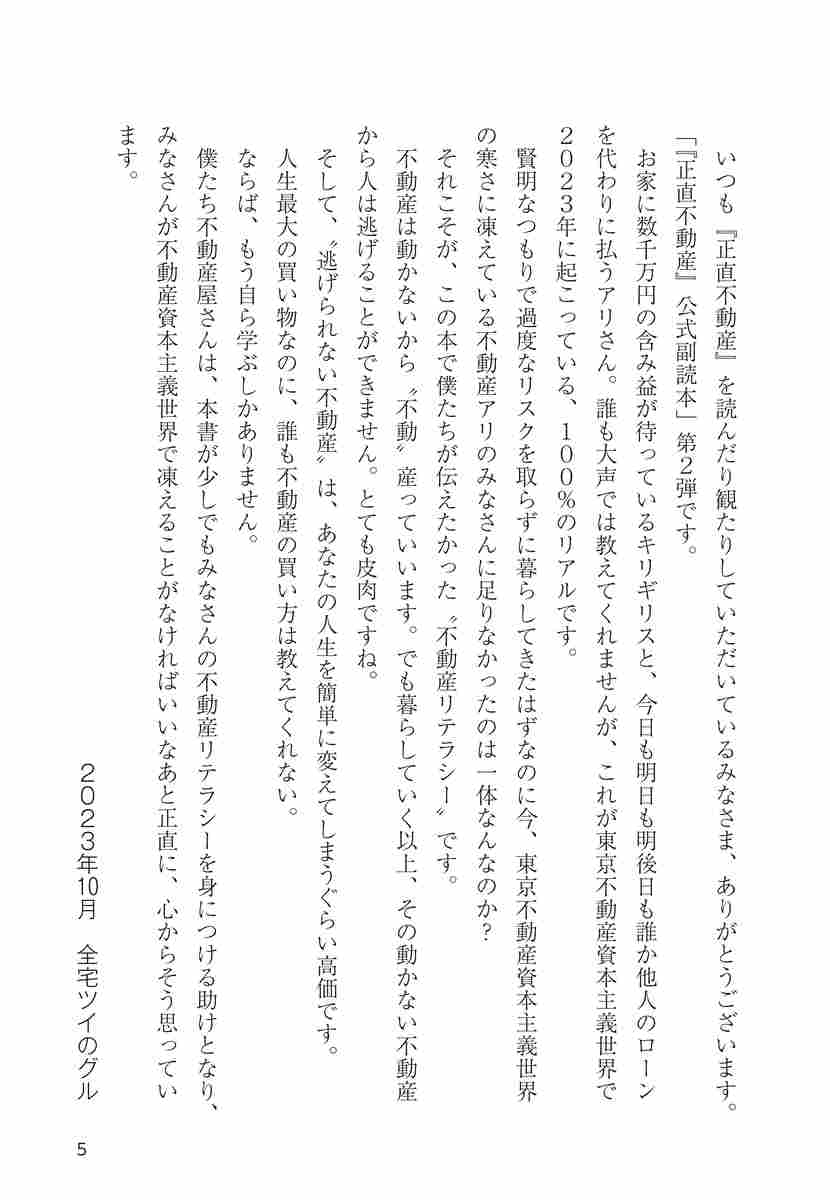 いつも『正直不動産』を読んだり観たりしていただいているみなさま、ありがとうございます。
「『正直不動産』公式副読本」第２弾です。
お家に数千万円の含み益が待っているキリギリスと、今日も明日も明後日も誰か他人のローン
を代わりに払うアリさん。誰も大声では教えてくれませんが、これが東京不動産資本主義世界で
２０２３年に起こっている、１００％のリアルです。
賢明なつもりで過度なリスクを取らずに暮らしてきたはずなのに今、東京不動産資本主義世界
の寒さに凍えている不動産アリのみなさんに足りなかったのは一体なんなのか？
それこそが、この本で僕たちが伝えたかった〝不動産リテラシー〟です。
不動産は動かないから〝不動〟産っていいます。でも暮らしていく以上、その動かない不動産
から人は逃げることができません。とても皮肉ですね。
そして、〝逃げられない不動産〟は、あなたの人生を簡単に変えてしまうぐらい高価です。
人生最大の買い物なのに、誰も不動産の買い方は教えてくれない。
ならば、もう自ら学ぶしかありません。
僕たち不動産屋さんは、本書が少しでもみなさんの不動産リテラシーを身につける助けとなり、
みなさんが不動産資本主義世界で凍えることがなければいいなあと正直に、心からそう思ってい
ます。
２０２３年10月　全宅ツイのグル
5